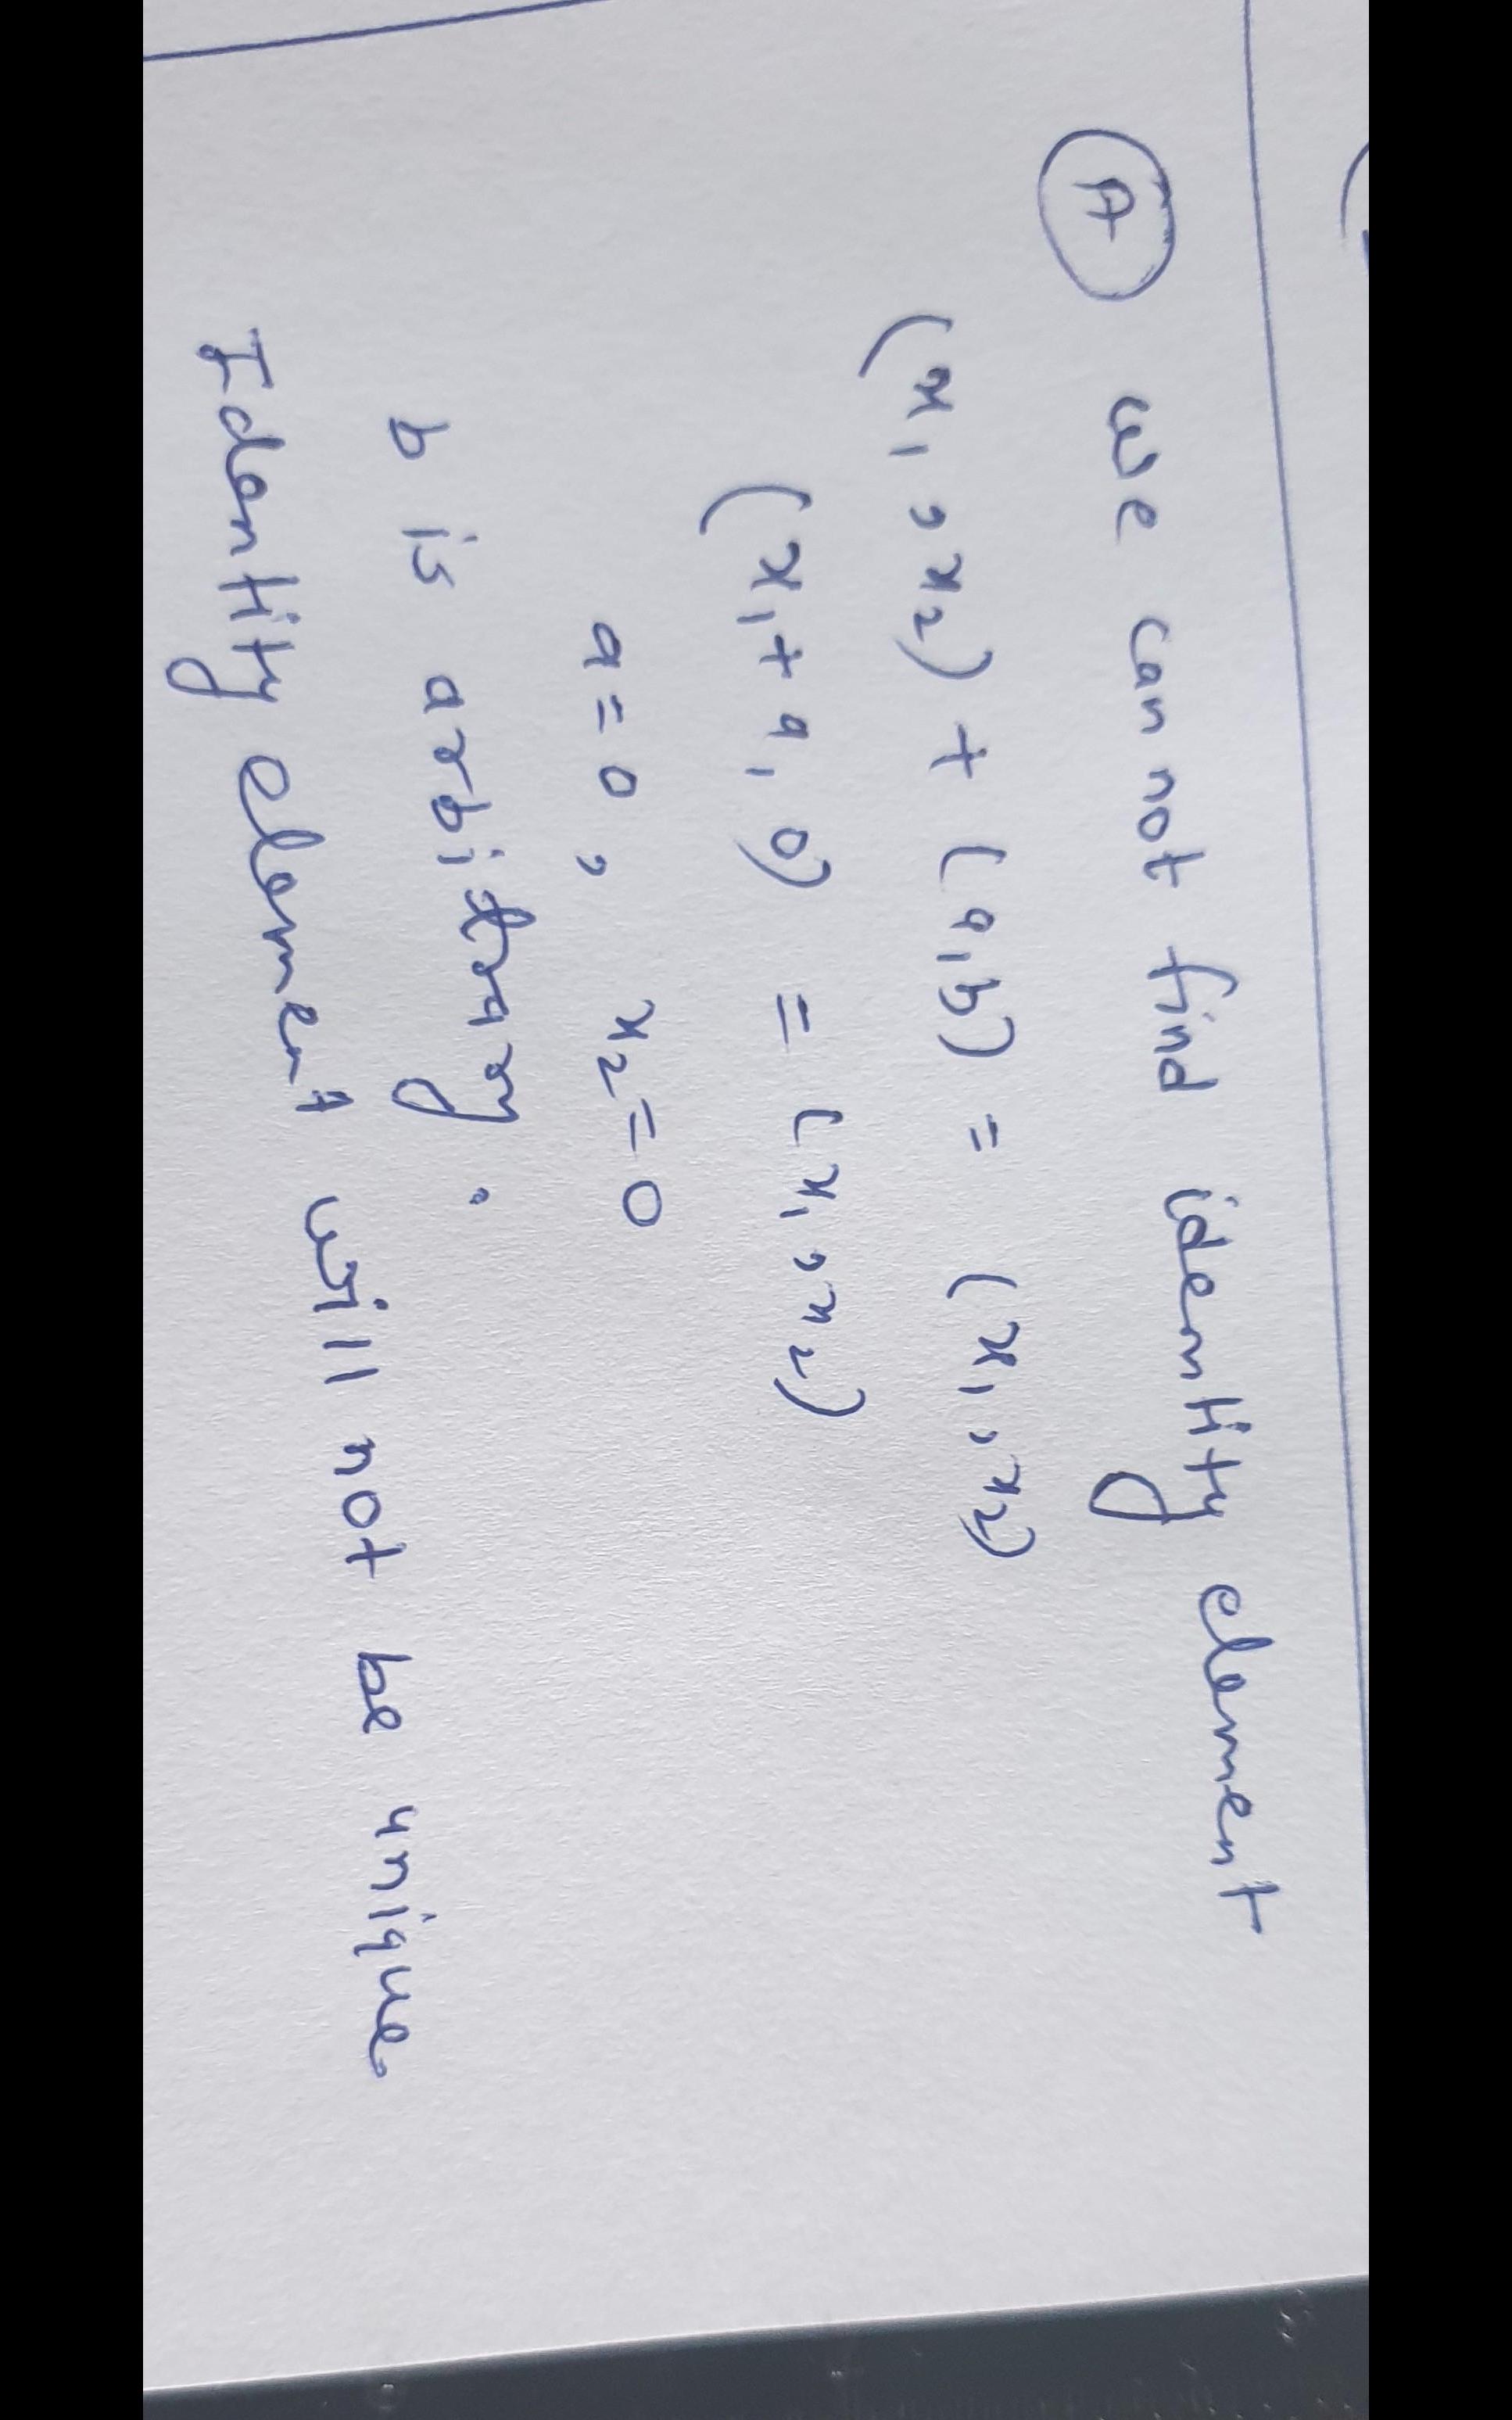 (A) we can not find identity element
(x₁, x₂) + (a, b) = (x₁, x₂)
(x₁ + a, 0) = (x₁, x₂)
a = 0, x₂ = 0
b is arbitrary.
Identity element will not be unique